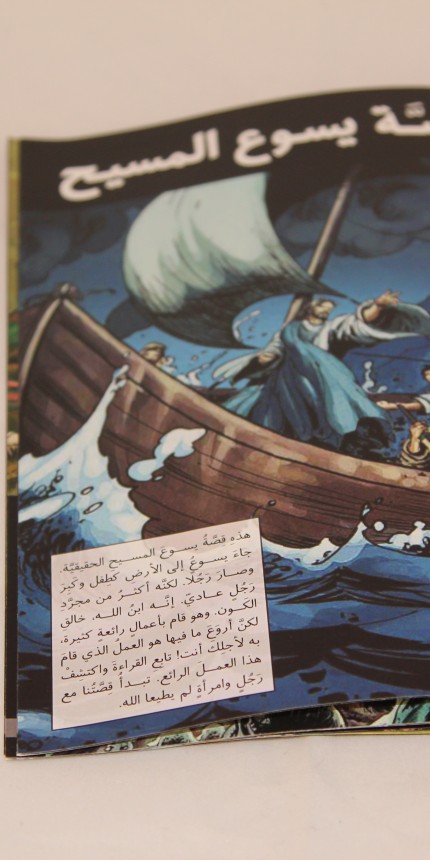 يسوع المسيح
هذِهِ قِصَّةُ يسوعَ المسيحِ الحقيقيَّة.
جاءَ يسوعُ إلى الأرضِ كَطِفلٍ وكَبِرَ
وصارَ رَجُلًا. لكنَّه أكثرُ من مجرَّدِ
رَجُلٍ عاديّ. إنَّه ابنُ اللـه، خالق
الكَون. وهو قامَ بأعمالٍ رائعة كثيرة،
لكنَّ أروَعَ ما فيها هو العملُ الذي قامَ
به لأجلِكَ أنت! تابِع القراءةَ واكتَشِفْ
هذا العمـلَ الرائع. تبـدأُ قِصَّتُنا مع
رَجُلٍ وامرأةٍ لم يطيعا الله.